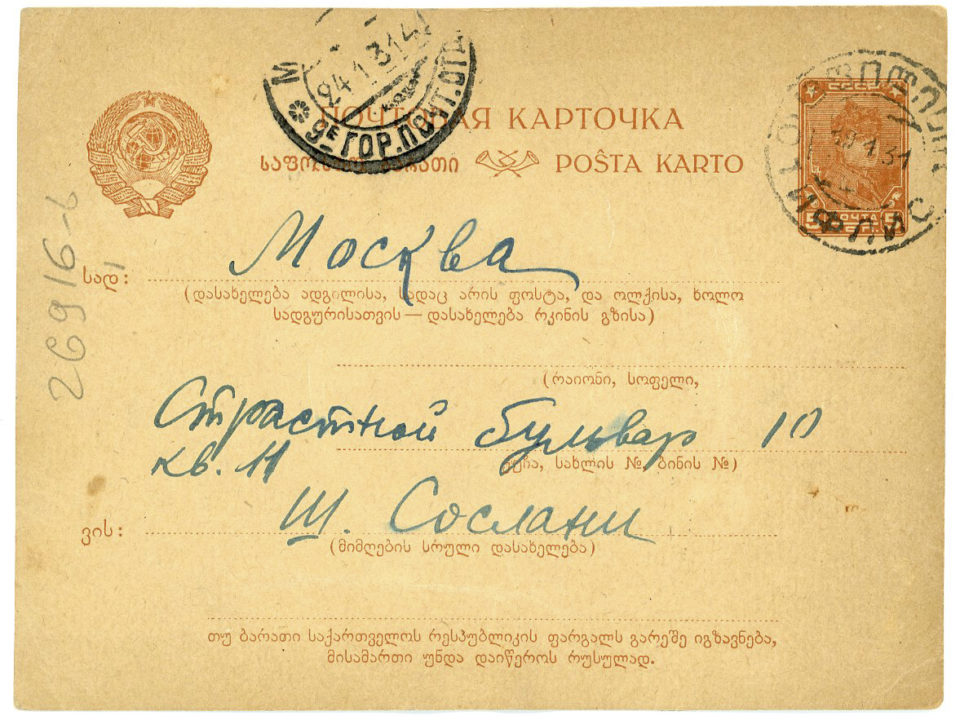 24.1.31
9Е ГОР. ПОЧТ. ОТД
ПОЧТОВАЯ КАРТОЧКА
POŜTA KARTO
19 1 31
ТИФЛИС
ПОЧТА
26916-ь
Москва
სად:
(დასახელება ადგილისა, სადაც არის ფოსტა, და ოლქისა, ხოლო
სადგურისათვის — დასახელება რკინის გზისა)
(რაიონი, სოფელი,
Страстной бульвар 10
ქუჩა, სახლის №, ბინის №)
кв. 11
Ш. Сослани
ვის:
(მიმღების სრული დასახელება)
თუ ბარათი საქართველოს რესპუბლიკის ფარგალს გარეშე იგზავნება,
მისამართი უნდა დაიწეროს რუსულად.